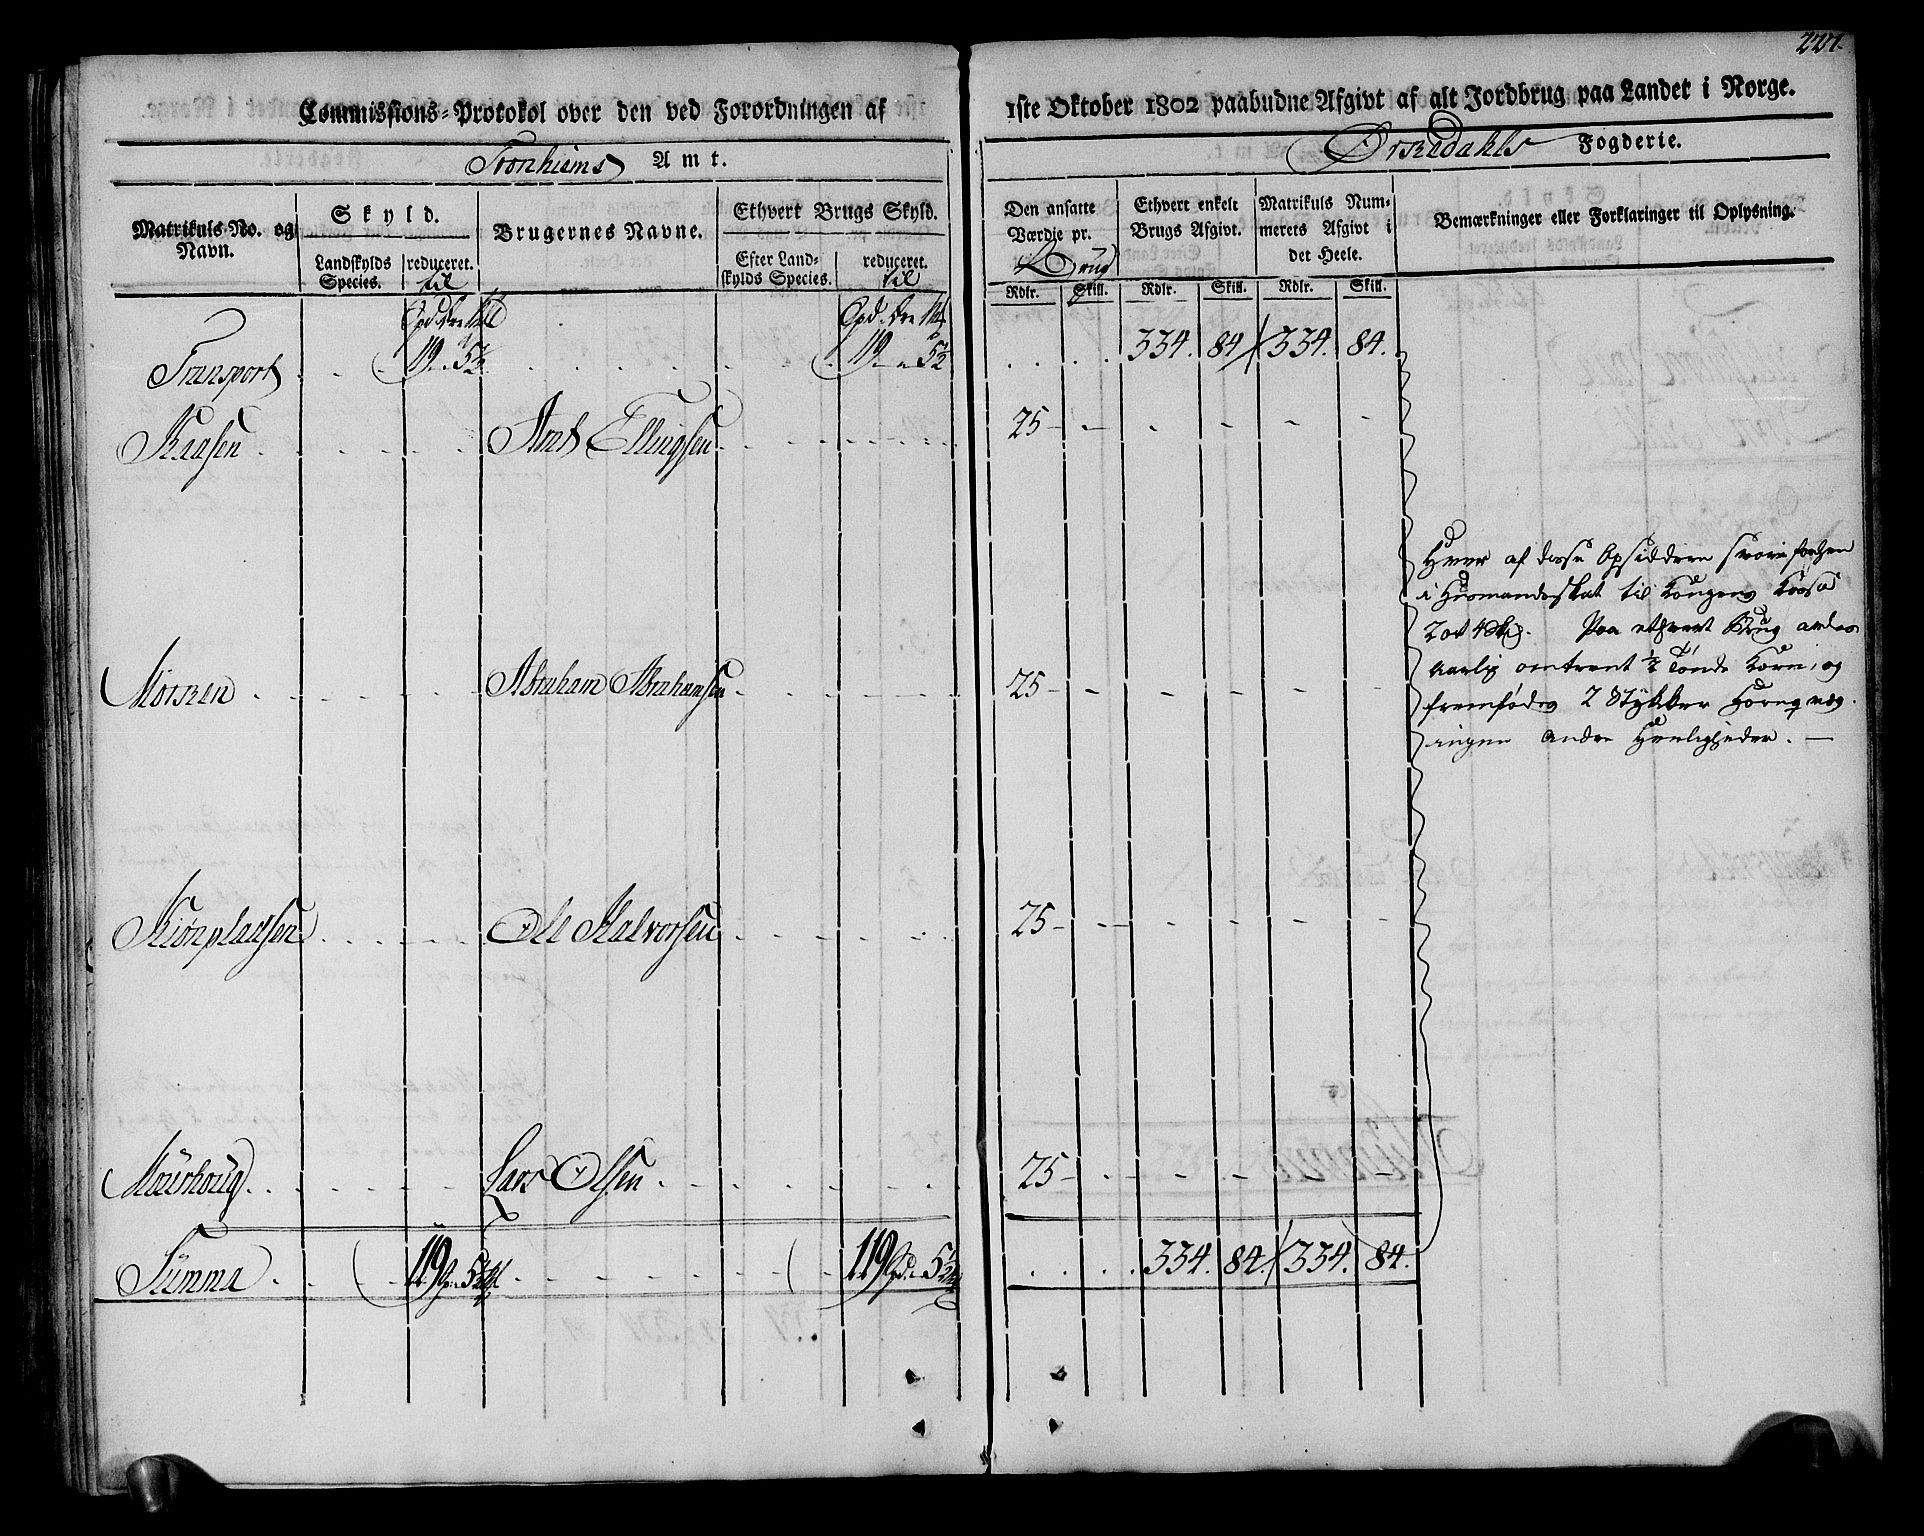 227.
Commissions-Protokol over den ved Forordningen af 1ste Oktober 1802 paabudne Afgivt af alt Jordbrug paa Landet i Norge.
Tronhiems Amt. Ørkedahls Fogderie.
Matrikuls No. og Navn.
Skyld.
Landskylds Species.
reduceret. til
Brugernes Navne.
Ethvert Brugs Skyld.
Efter Landskylds Species.
reduceret. til
Den ansatte Værdie pr. Brug
Rdlr. Skill.
Ethvert enkelt Brugs Afgivt.
Rdlr. Skill.
Matrikuls Nummerets Afgivt i det Heele.
Rdlr. Skill.
Bemærkninger eller Forklaringer til Oplysning.
Transport 119 - 5½ 119 - 5½ 334. 84 334. 84.
Kaasen Arnt Ellingsen 25 -
Hver af disse Opsiddere svore forhen
i Huusmandsskat til Kongens Kasse
2 ort 4 Sk. Paa ethvert Brug avles
aarlig omtrent ½ Tønde Korn, og
fremfødes 2 Stykker Hornqvæg.
ingen andre Herligheder. —
Morken Abraham Abrahamsen 25 -
Kiønpladsen Ole Halvorsen 25 -
Mourhoug Lars Olsen 25 -
Summa 119 5½ 119 5½ 334. 84. 334. 84.